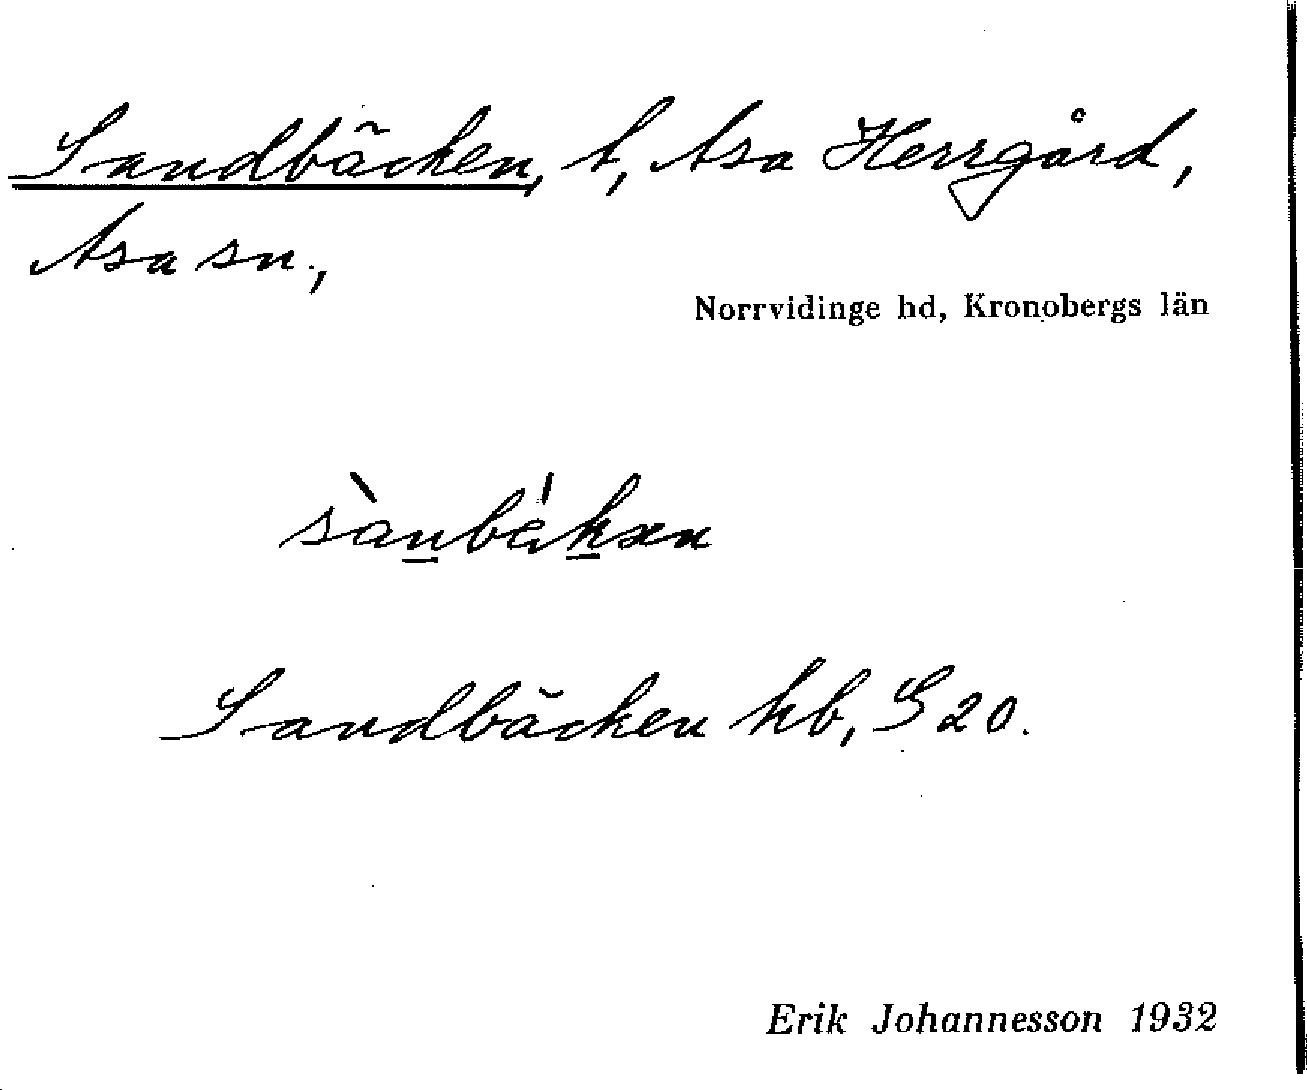 Sandbäcken, t, Asa Herrgård,
Asa sn.,
Norrvidinge hd, Kronobergs län
Sandbäcken hb, S 20.
Erik Johannesson 1932